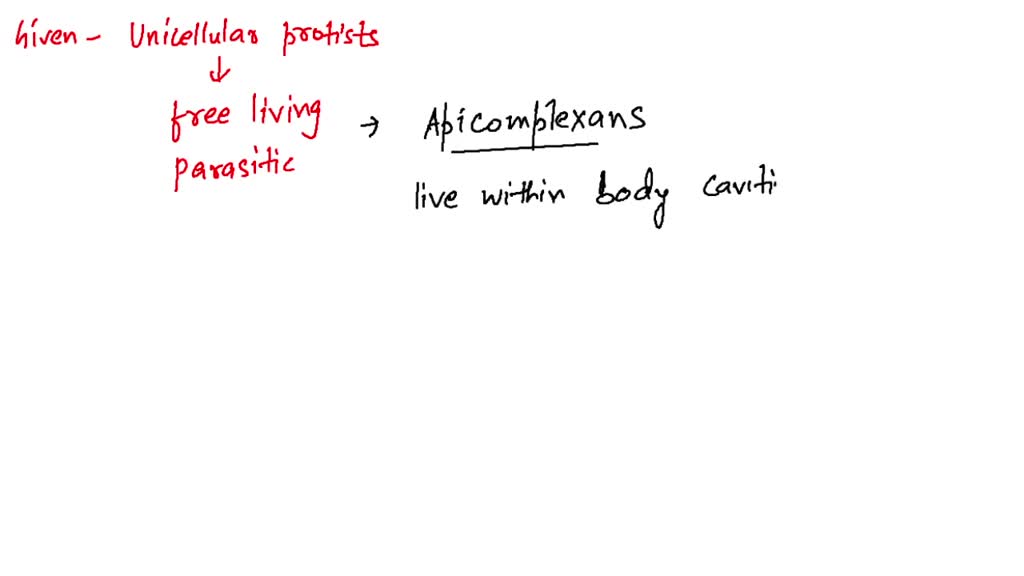 Given - Unicellular protists
↓
free living → Apicomplexans
parasitic
live within body caviti